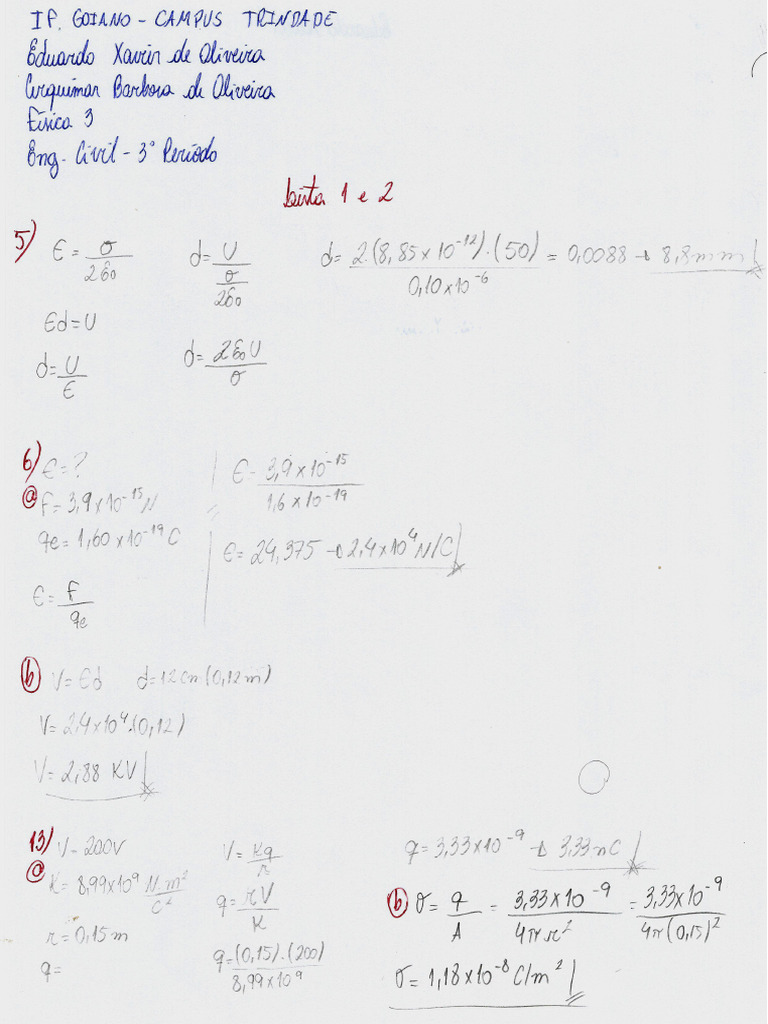 IF. GOIANO - CAMPUS TRINDADE
Eduardo Xavier de Oliveira
Barbosa de Oliveira
Física 3
Eng. Civil - 3° Período
Lista 1 e 2
5)
E = σ/2ε₀
Ed = U
d = U/E
d = U/(σ/2ε₀)
d = 2ε₀U/σ
d = 2.(8,85x10⁻¹²).(50)/0,10x10⁻⁶ = 0,0088 → 8,8mm
6)
a
E = ?
F = 3,9x10⁻¹⁵N
qe = 1,60x10⁻¹⁹C
E = F/qe
E = 3,9x10⁻¹⁵/1,6x10⁻¹⁹
E = 24,375 → 2,4x10⁴N/C
b
V = Ed d = 12cm (0,12m)
V = 2,4x10⁴.(0,12)
V = 2,88 KV
13)
a
V = 200V
K = 8,99x10⁹ N.m²/C²
r = 0,15m
q =
V = Kq/r
q = rV/K
q = (0,15).(200)/8,99x10⁹
q = 3,33x10⁻⁹ → 3,33nC
b σ = q/A = 3,33x10⁻⁹/4πr² = 3,33x10⁻⁹/4π(0,15)²
σ = 1,18x10⁻⁸ C/m²